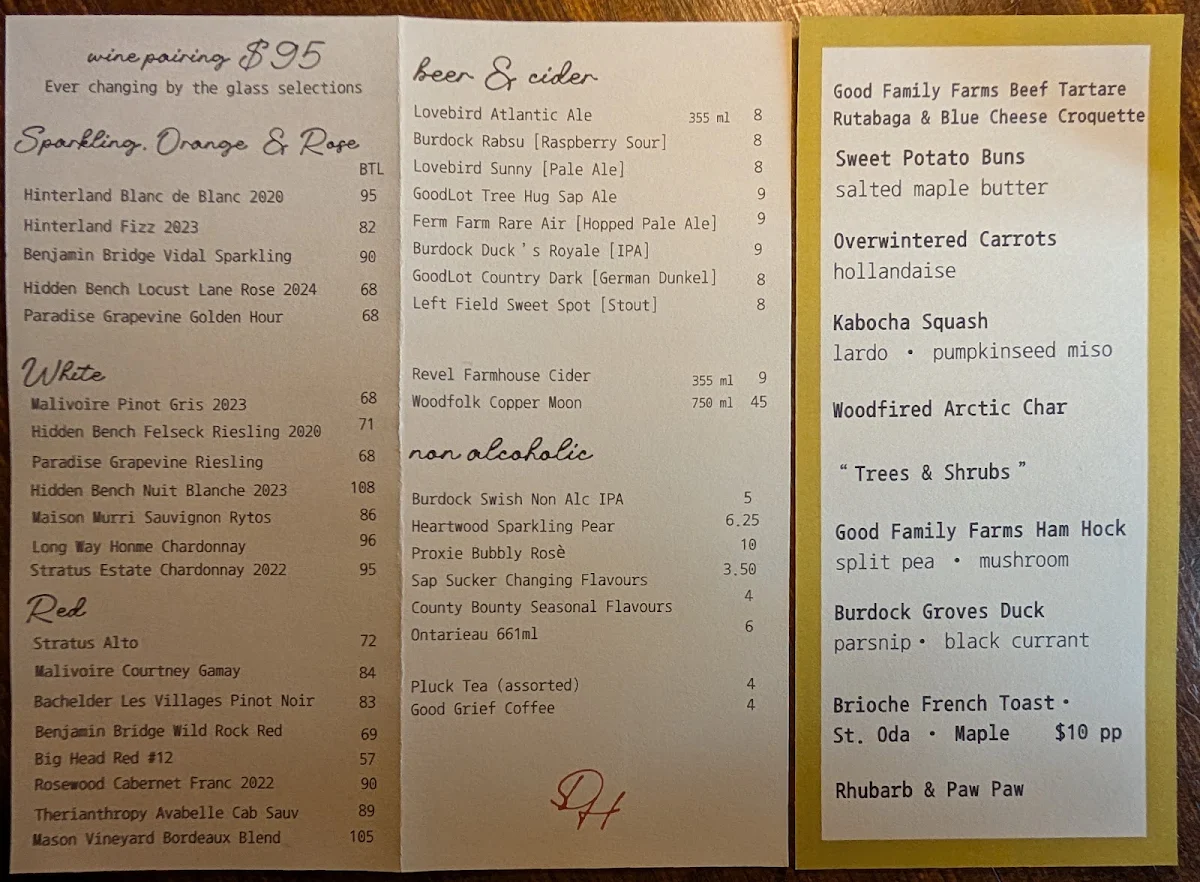 wine pairing $95
Ever changing by the glass selections
Sparkling, Orange & Rose
BTL
Hinterland Blanc de Blanc 2020 95
Hinterland Fizz 2023 82
Benjamin Bridge Vidal Sparkling 90
Hidden Bench Locust Lane Rose 2024 68
Paradise Grapevine Golden Hour 68
White
Malivoire Pinot Gris 2023 68
Hidden Bench Felseck Riesling 2020 71
Paradise Grapevine Riesling 68
Hidden Bench Nuit Blanche 2023 108
Maison Murri Sauvignon Rytos 86
Long Way Honme Chardonnay 96
Stratus Estate Chardonnay 2022 95
Red
Stratus Alto 72
Malivoire Courtney Gamay 84
Bachelder Les Villages Pinot Noir 83
Benjamin Bridge Wild Rock Red 69
Big Head Red #12 57
Rosewood Cabernet Franc 2022 90
Therianthropy Avabelle Cab Sauv 89
Mason Vineyard Bordeaux Blend 105
beer & cider
Lovebird Atlantic Ale 355 ml 8
Burdock Rabsu [Raspberry Sour] 8
Lovebird Sunny [Pale Ale] 8
GoodLot Tree Hug Sap Ale 9
Ferm Farm Rare Air [Hopped Pale Ale] 9
Burdock Duck's Royale [IPA] 9
GoodLot Country Dark [German Dunkel] 8
Left Field Sweet Spot [Stout] 8
Revel Farmhouse Cider 355 ml 9
Woodfolk Copper Moon 750 ml 45
non alcoholic
Burdock Swish Non Alc IPA 5
Heartwood Sparkling Pear 6.25
Proxie Bubbly Rosè 10
Sap Sucker Changing Flavours 3.50
County Bounty Seasonal Flavours 4
Ontarieau 661ml 6
Pluck Tea (assorted) 4
Good Grief Coffee 4
DH
Good Family Farms Beef Tartare
Rutabaga & Blue Cheese Croquette
Sweet Potato Buns
salted maple butter
Overwintered Carrots
hollandaise
Kabocha Squash
lardo • pumpkinseed miso
Woodfired Arctic Char
"Trees & Shrubs"
Good Family Farms Ham Hock
split pea • mushroom
Burdock Groves Duck
parsnip • black currant
Brioche French Toast •
St. Oda • Maple $10 pp
Rhubarb & Paw Paw